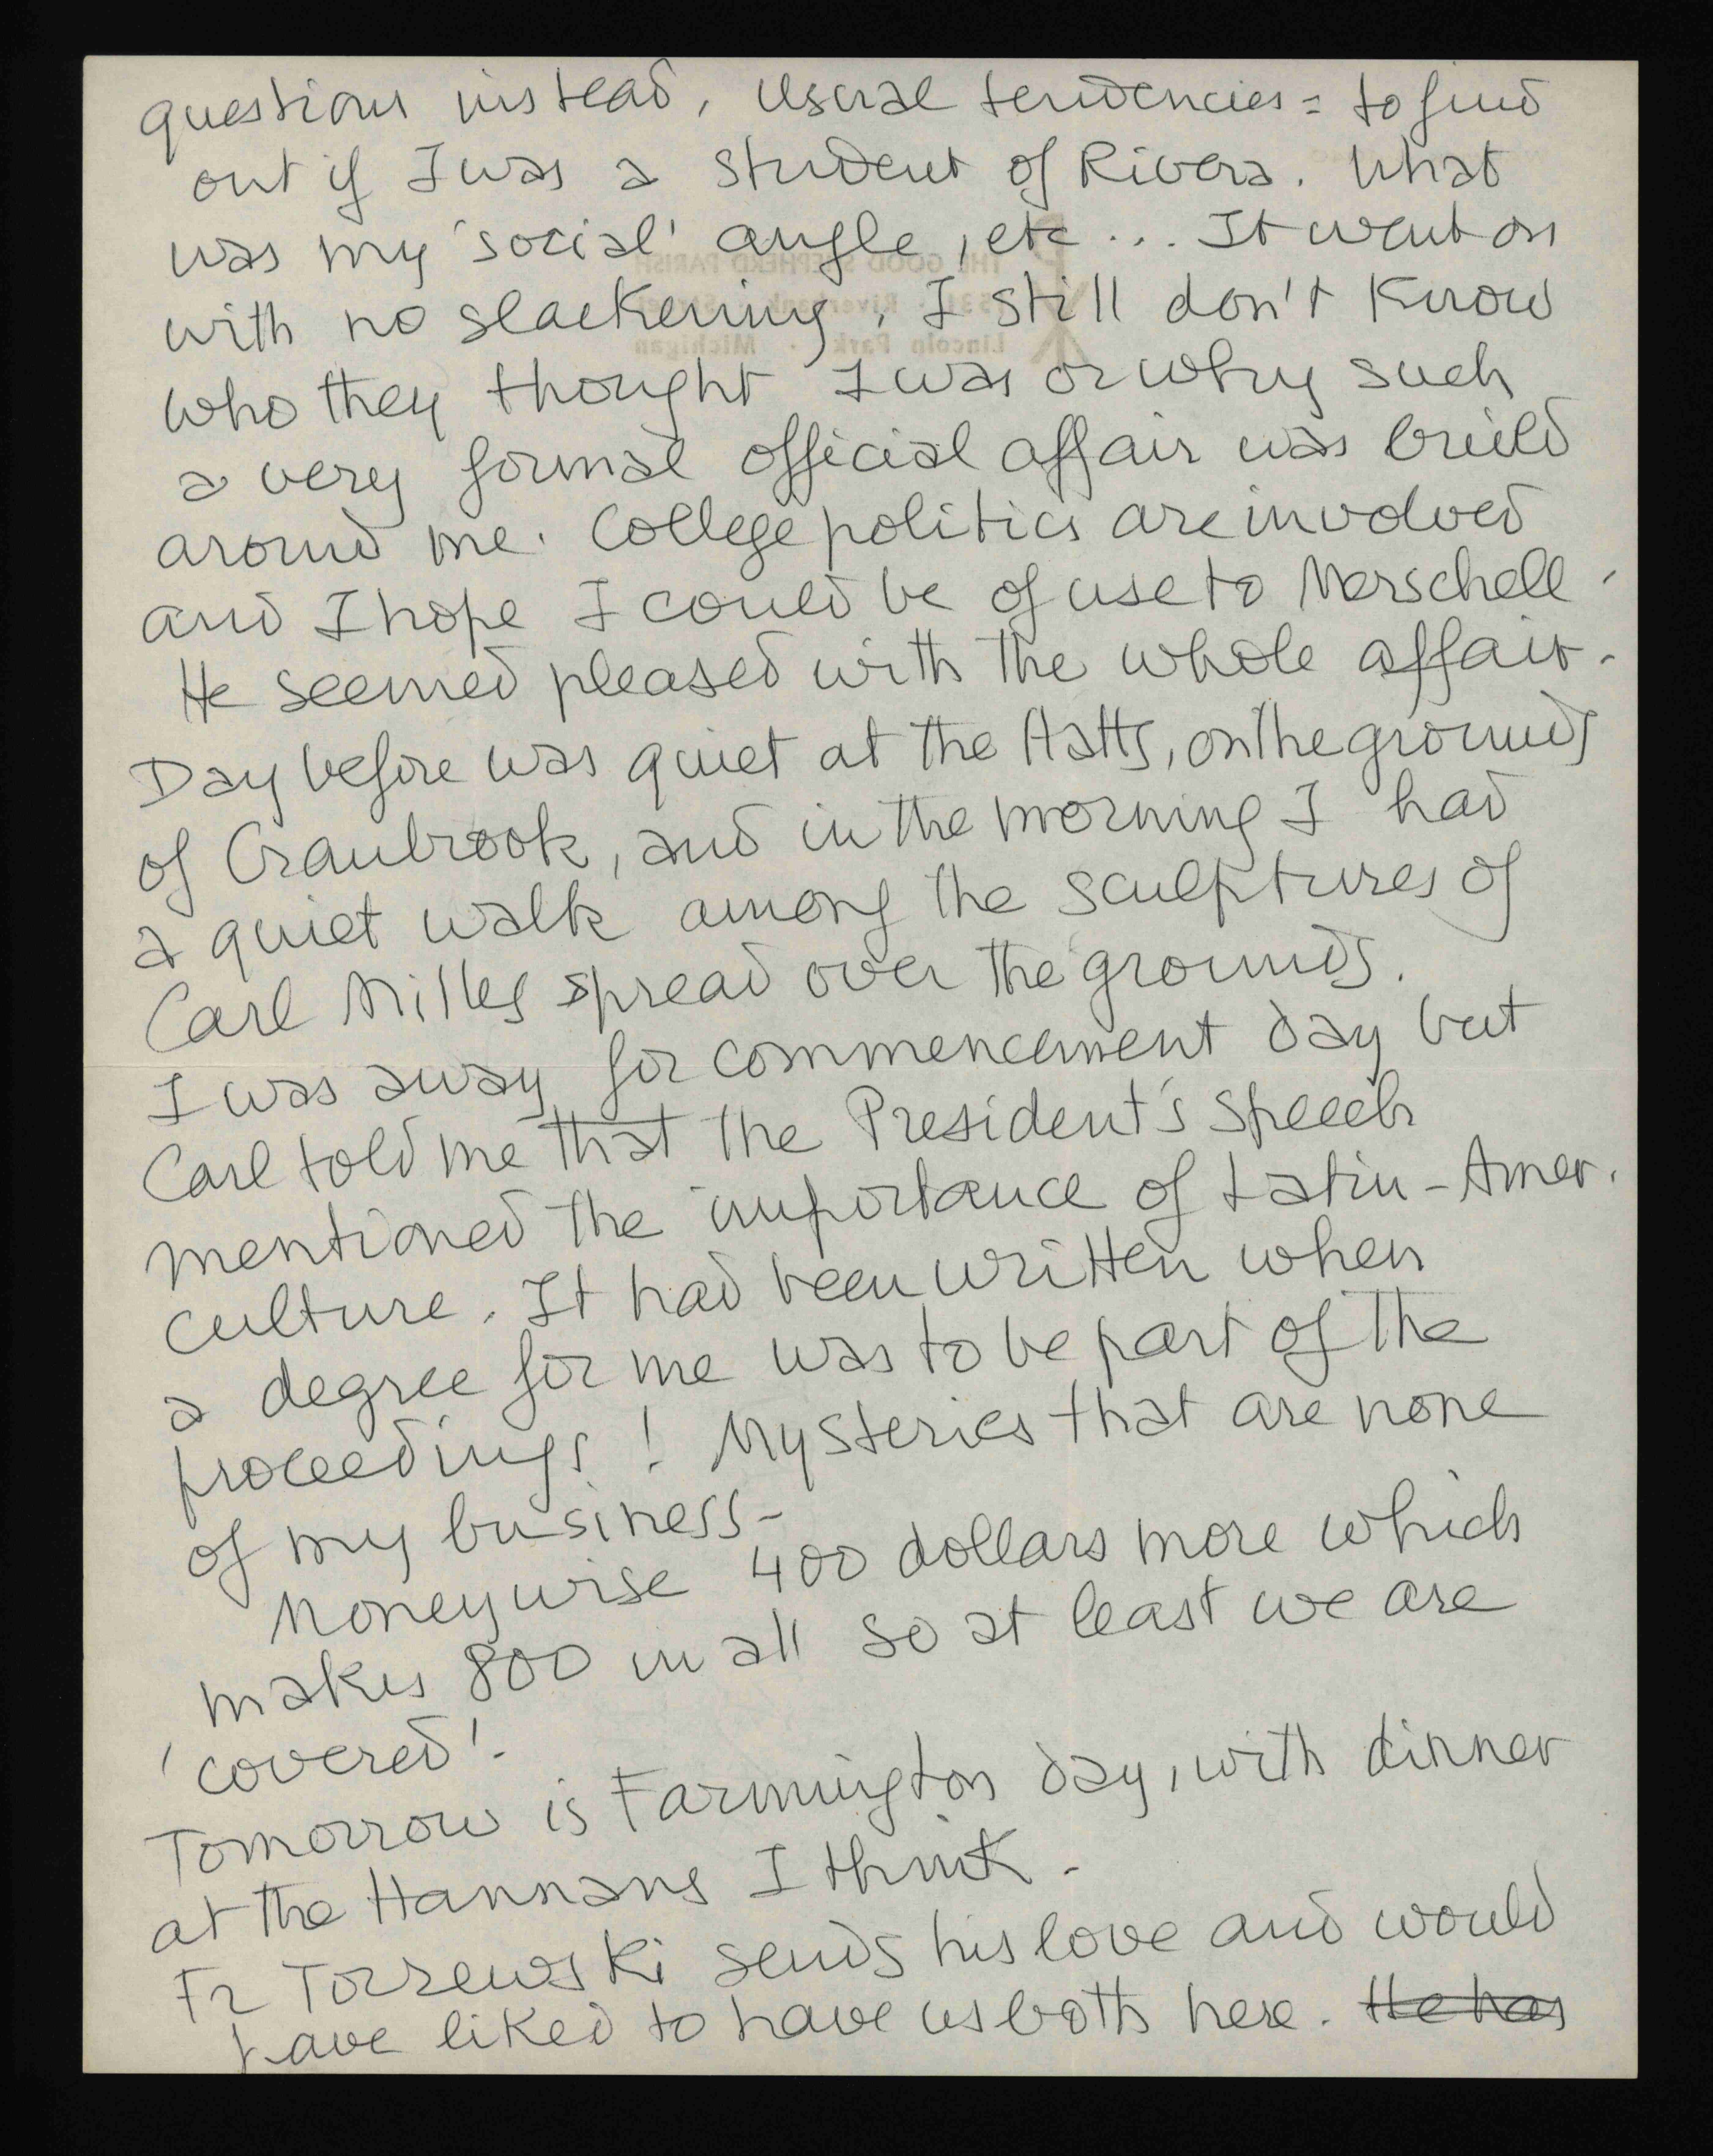 questions instead. Usual tendencies = to find
out if I was a student of Rivera. What
was my 'social' angle, etc... It went on
with no slackening. I still don't know
who they thought I was or why such
a very formal official affair was build
around me. College politics are involved
and I hope I could be of use to Merschell.
He seemed pleased with the whole affair.
Day before was quiet at the Hatts, on the grounds
of Cranbrook, and in the morning I had
a quiet walk among the sculptures of
Carl Milles spread over the grounds.
I was away for commencement day but
Carl told me that the President's speech
mentioned the importance of Latin-Amer.
culture. It had been written when
a degree for me was to be part of the
proceedings! Mysteries that are none
of my business-
Moneywise 400 dollars more which
makes 800 in all so at least we are
'covered'.
Tomorrow is Farmington day, with dinner
at the Hannans I think.
Fr Torzewski sends his love and would
have liked to have us both here. He has
THE GOOD SHEPHERD PARISH
Riverbank Street
Lincoln Park · Michigan